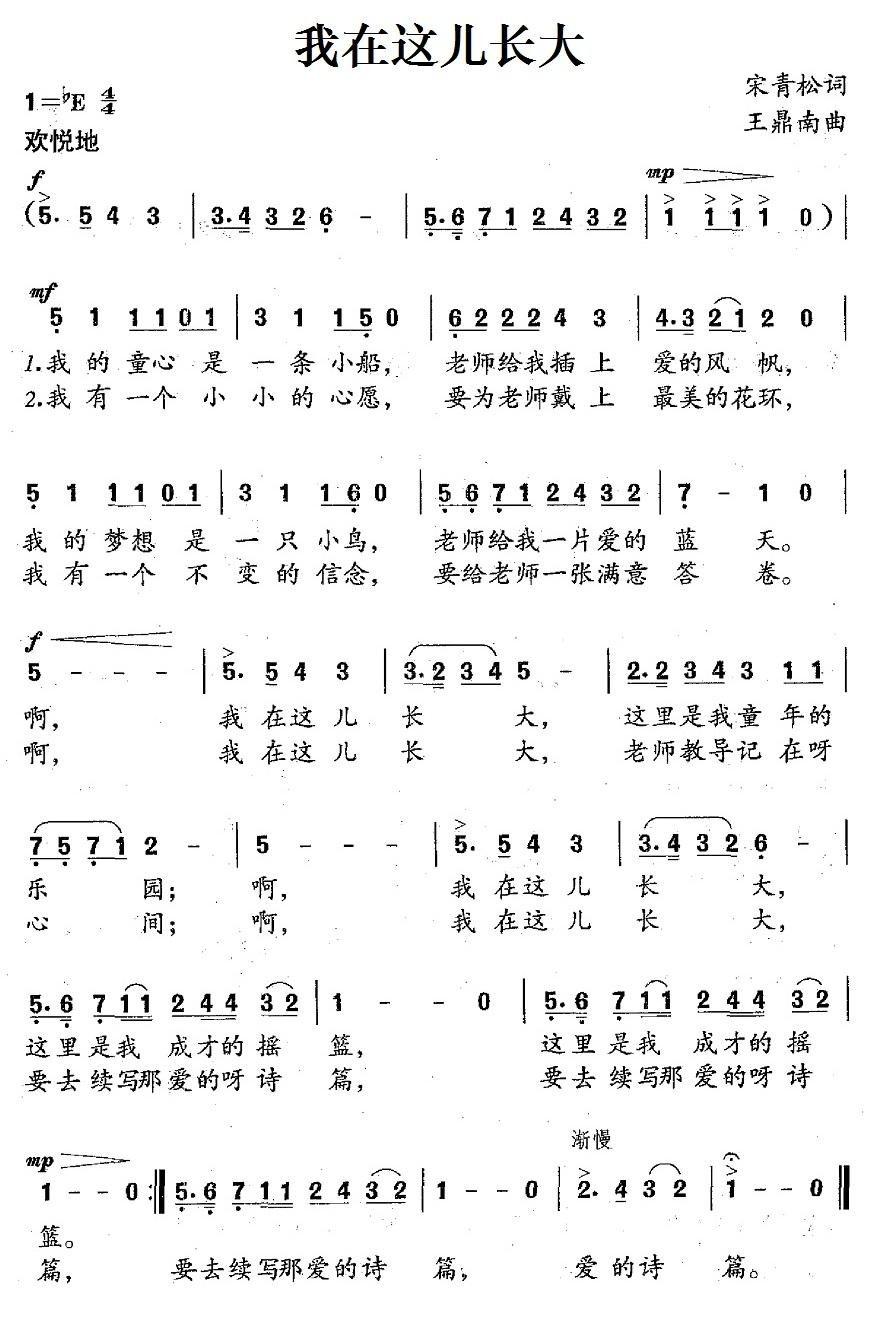 我在这儿长大
宋青松词
1=♭E 4/4
王鼎南曲
欢悦地
f mp
(5. 5 4 3 | 3.4 3 2 6 - | 5.6 7 1 2 4 3 2 | 1 1 1 1 0 ) |
mf
5 1 1 1 0 1 | 3 1 1 5 0 | 6 2 2 2 4 3 | 4.3 2 1 2 0 |
1.我 的 童心 是 一 条 小船, 老师给我插 上 爱的风 帆,
2.我 有 一个 小 小 的 心愿, 要为老师戴 上 最美的花环,
5 1 1 1 0 1 | 3 1 1 6 0 | 5 6 7 1 2 4 3 2 | 7 - 1 0 |
我 的 梦想 是 一 只 小鸟, 老师给我一片爱的 蓝 天。
我 有 一个 不 变 的 信念, 要给老师一张满意 答 卷。
f
5 - - - | 5. 5 4 3 | 3.2 3 4 5 - | 2.2 3 4 3 1 1 |
啊, 我 在这 儿 长 大, 这里是我童 年的
啊, 我 在这 儿 长 大, 老师教导记 在呀
7 5 7 1 2 - | 5 - - - | 5. 5 4 3 | 3.4 3 2 6 - |
乐 园; 啊, 我 在这 儿 长 大,
心 间; 啊, 我 在这 儿 长 大,
5.6 7 1 1 2 4 4 3 2 | 1 - - 0 | 5.6 7 1 1 2 4 4 3 2 |
这里是我 成才的摇 篮, 这里是我 成才的摇
要去续写那爱的呀诗 篇, 要去续写那爱的呀诗
mp 渐慢
1 - - 0 :‖ 5.6 7 1 1 2 4 3 2 | 1 - - 0 | 2. 4 3 2 | 1 - - 0 ‖
篮。
篇, 要去续写那爱的诗 篇, 爱 的诗 篇。